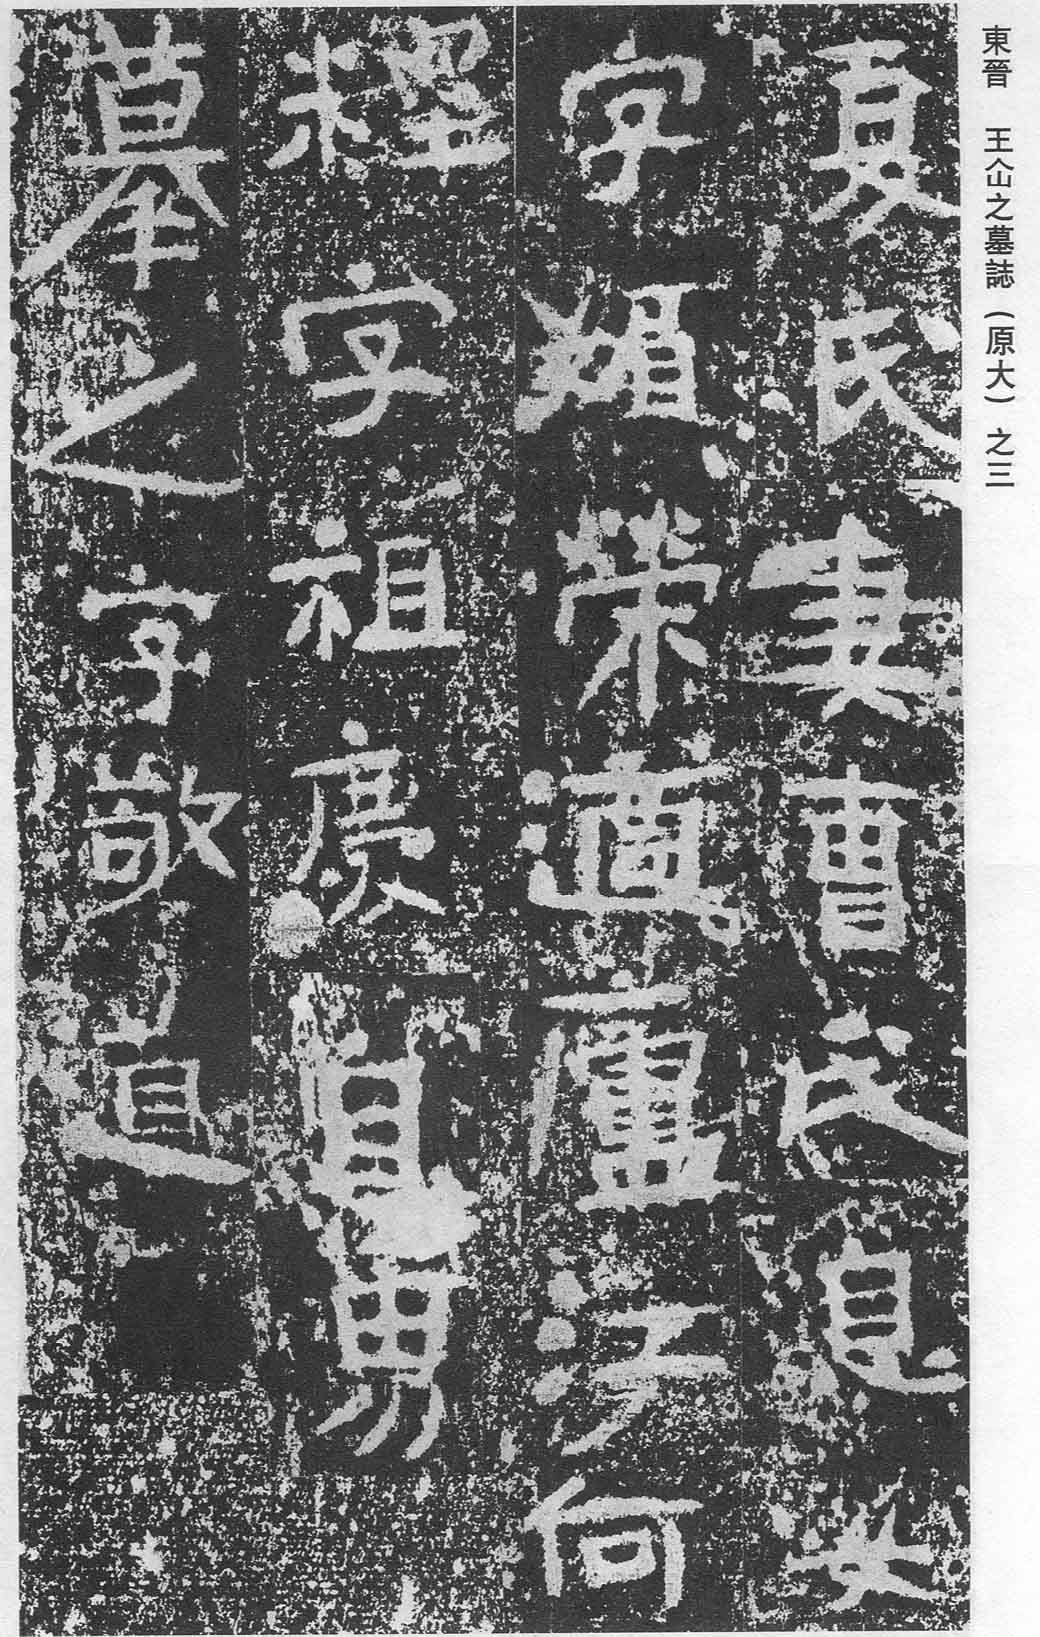 東晉 王仚之墓誌（原大） 之三
夏氏妻曹氏息女
字媚榮適廬江何
字祖慶息男
摹之字敬道